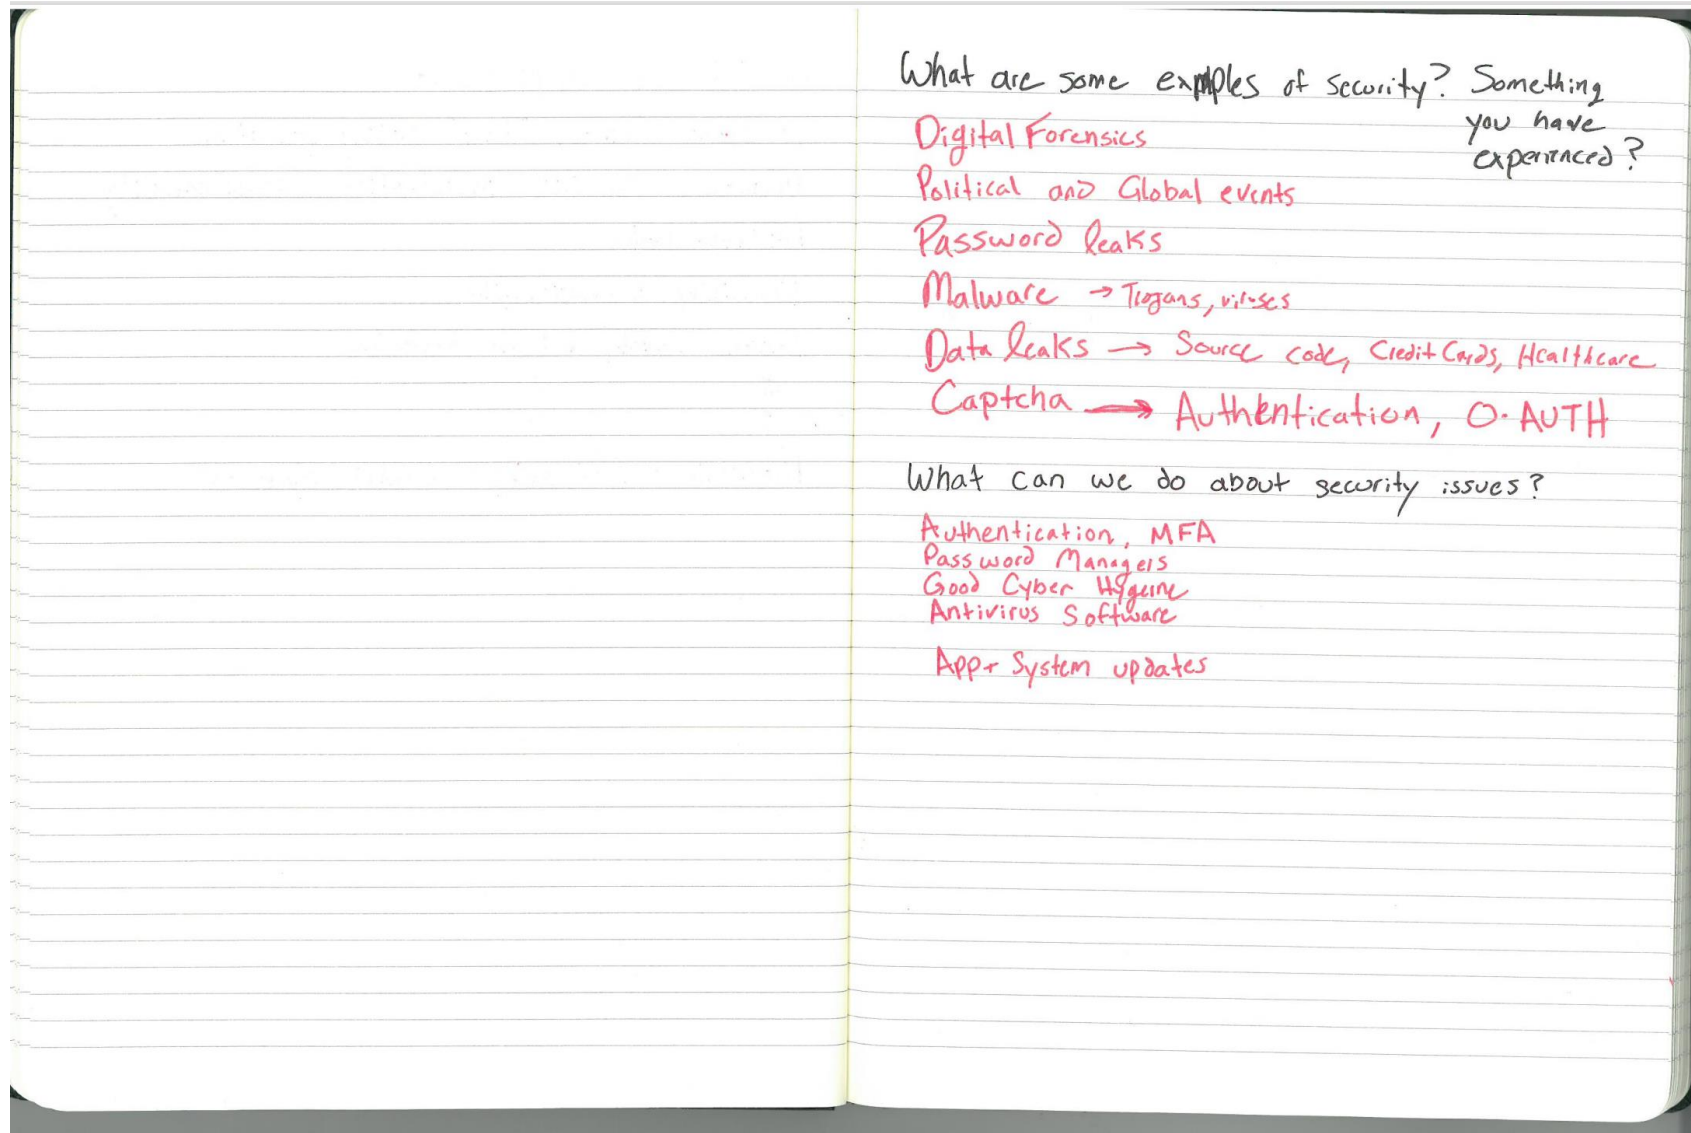 What are some examples of security? Something
you have
experienced?
Digital Forensics
Political and Global events
Password leaks
Malware → Trojans, viruses
Data leaks → Source code, Credit Cards, Healthcare
Captcha → Authentication, O-AUTH
What can we do about security issues?
Authentication, MFA
Password Managers
Good Cyber Hygeine
Antivirus Software
App + System updates